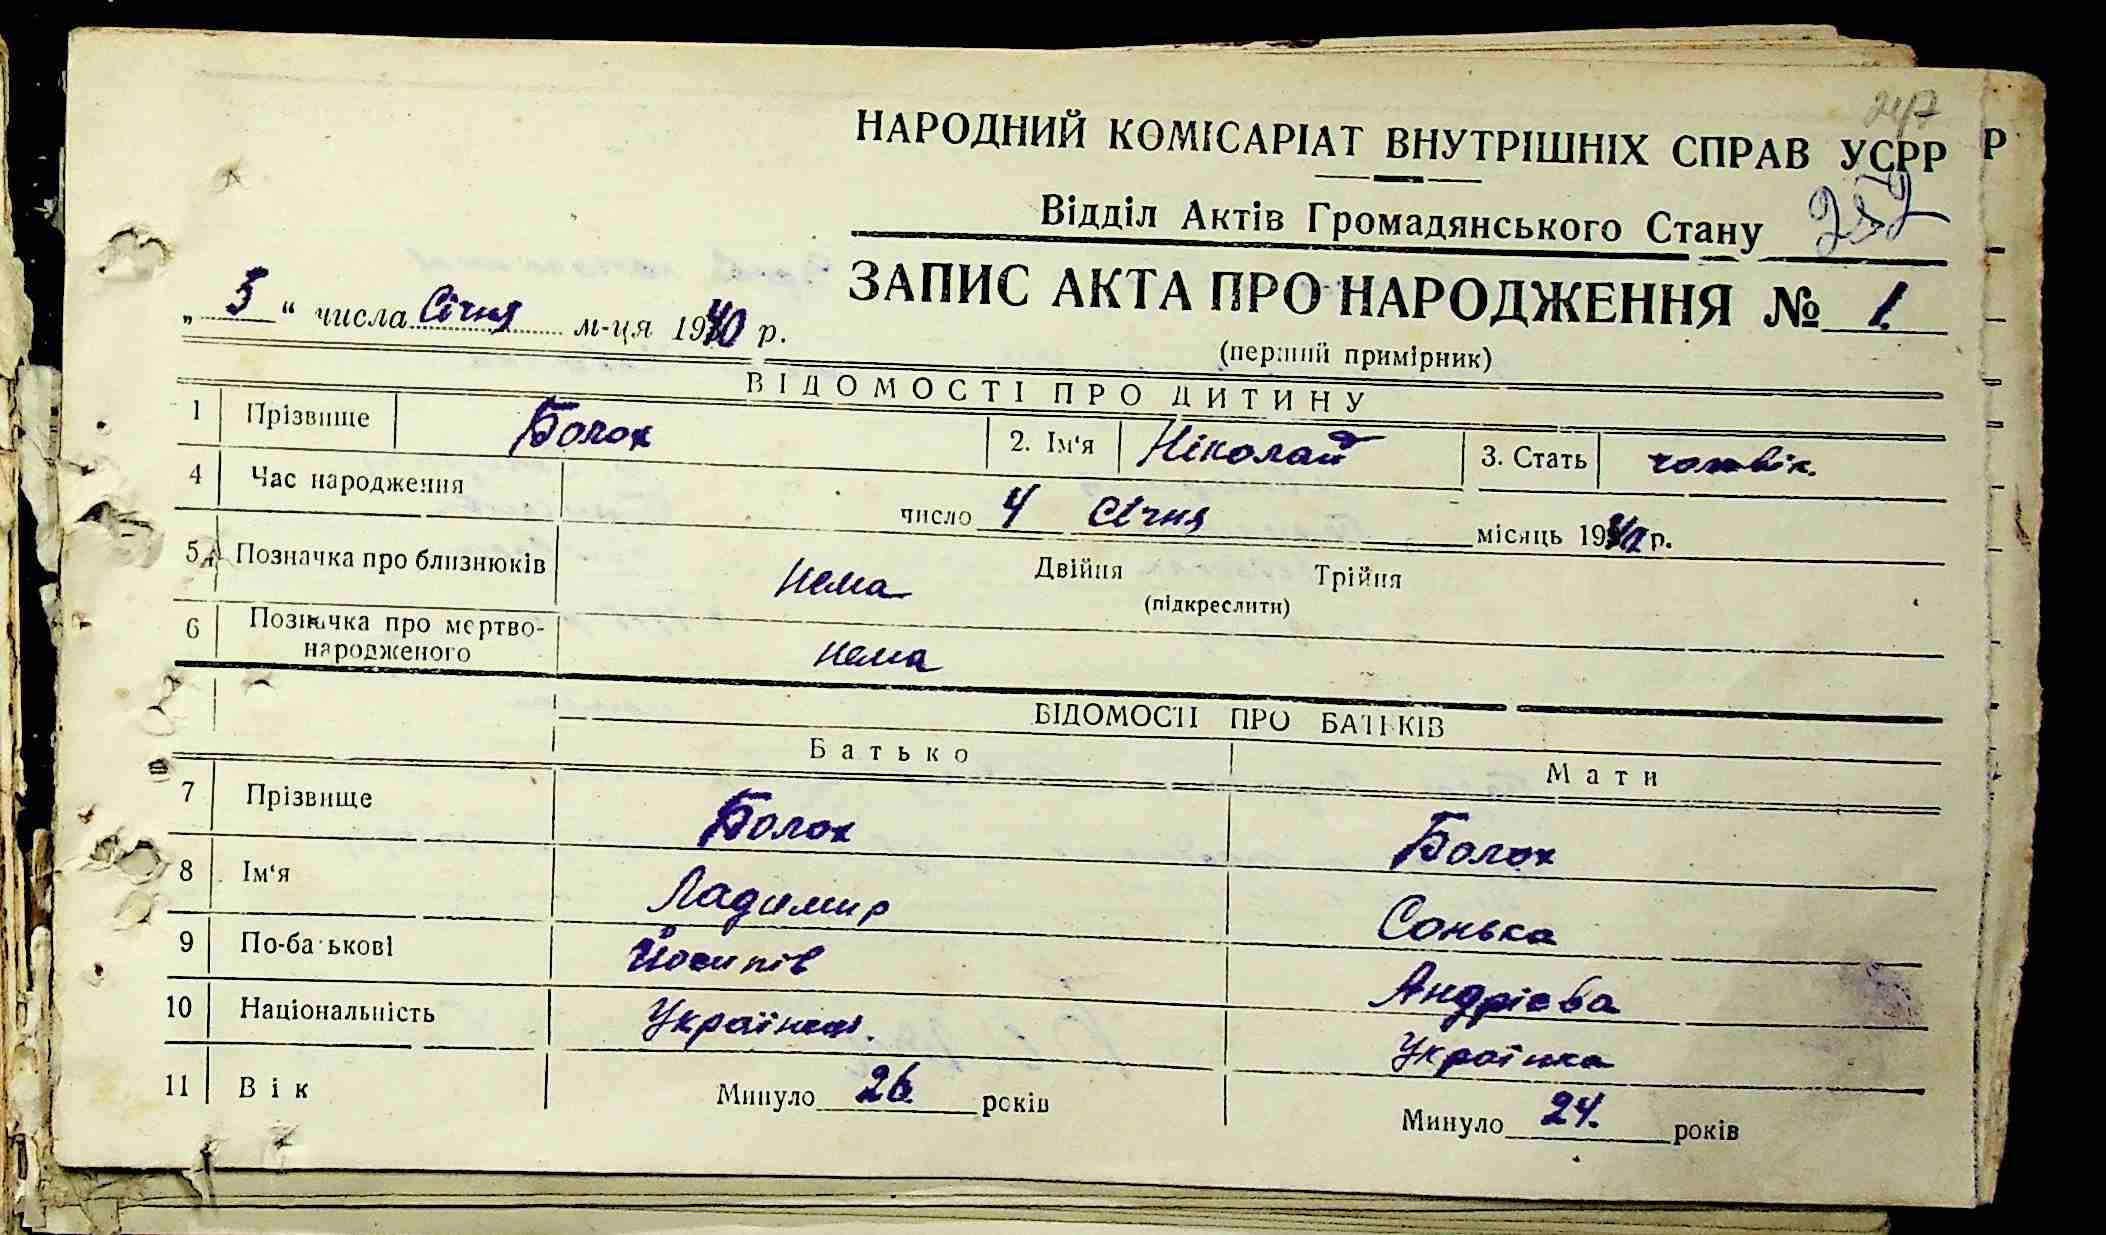 247
НАРОДНИЙ КОМІСАРІАТ ВНУТРІШНІХ СПРАВ УСРР Р
Відділ Актів Громадянського Стану
ЗАПИС АКТА ПРО НАРОДЖЕННЯ № 1.
(перший примірник)
„ 5 “ числа Січня м-ця 1940 р.
ВІДОМОСТІ ПРО ДИТИНУ
1 Прізвище Болох 2. Ім'я Ніколай 3. Стать чоловік.
4 Час народження число 4 Січня місяць 1940 р.
5 Позначка про близнюків нема Двійня Трійня
(підкреслити)
6 Позначка про мертво-
народженого нема
ВІДОМОСТІ ПРО БАТЬКІВ
Батько Мати
7 Прізвище Болох Болох
8 Ім'я Ладимир Сонька
9 По-батькові Йосипів Андрієва
10 Національність Українец. Українка
11 Вік Минуло 26. років Минуло 24. років